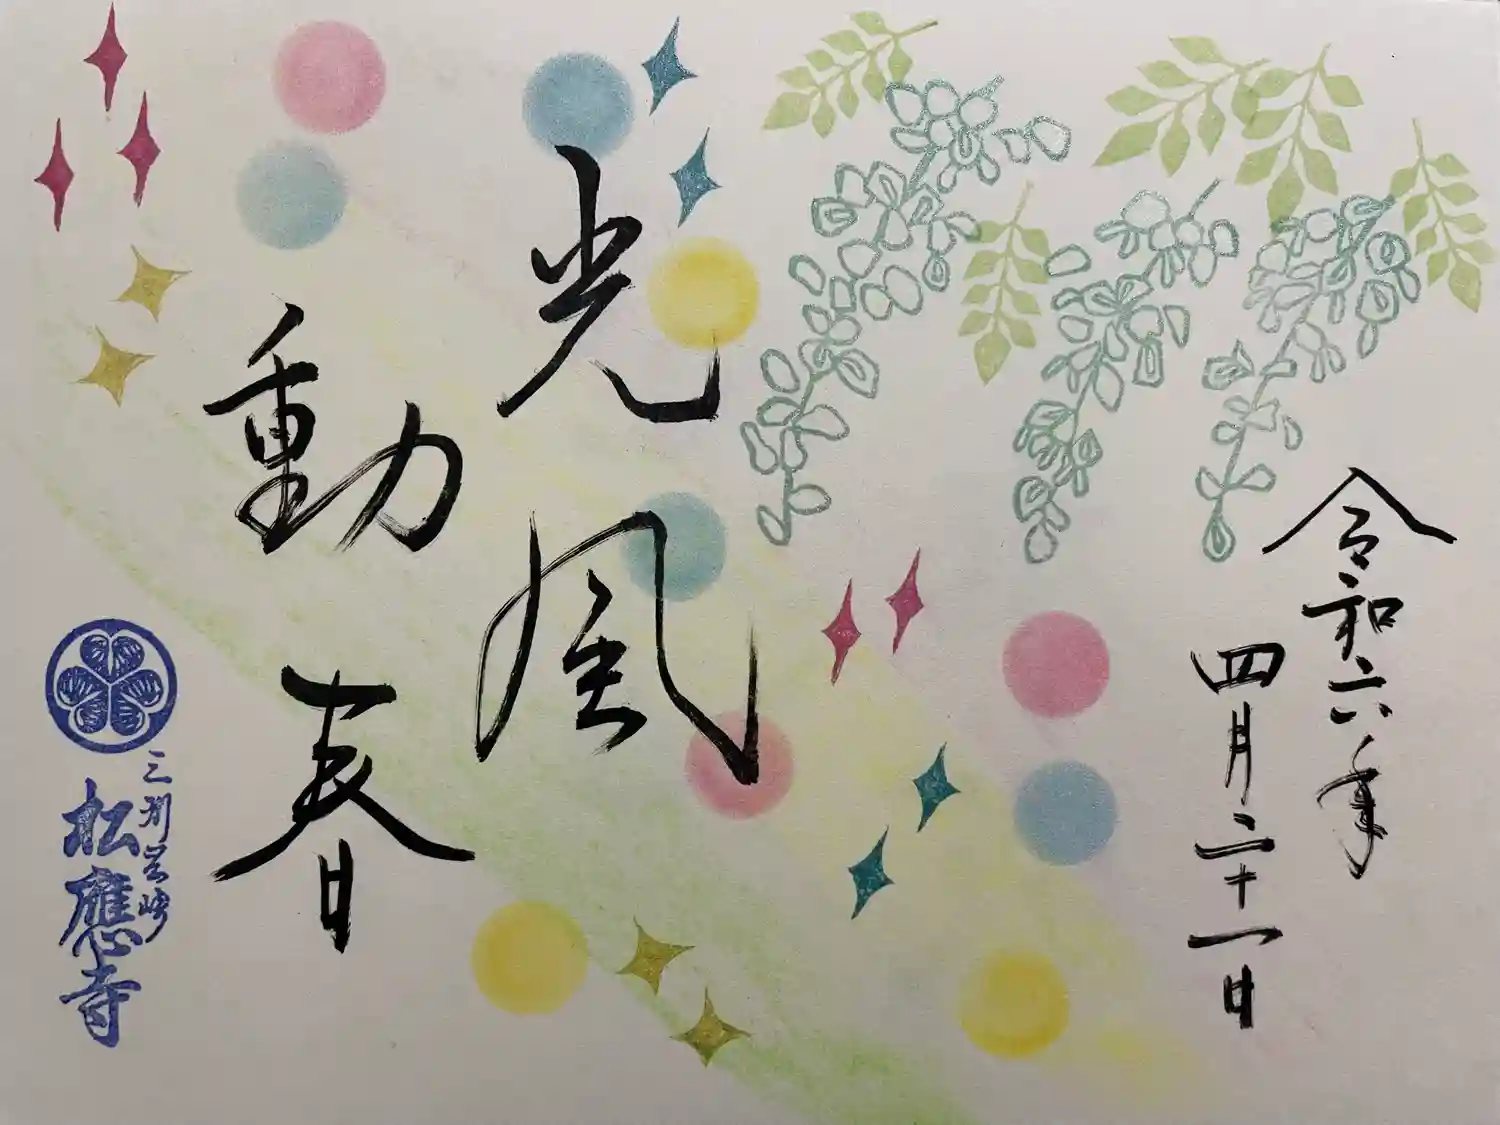 令和六年
四月二十一日
光風
動春
三州岡崎
松應寺